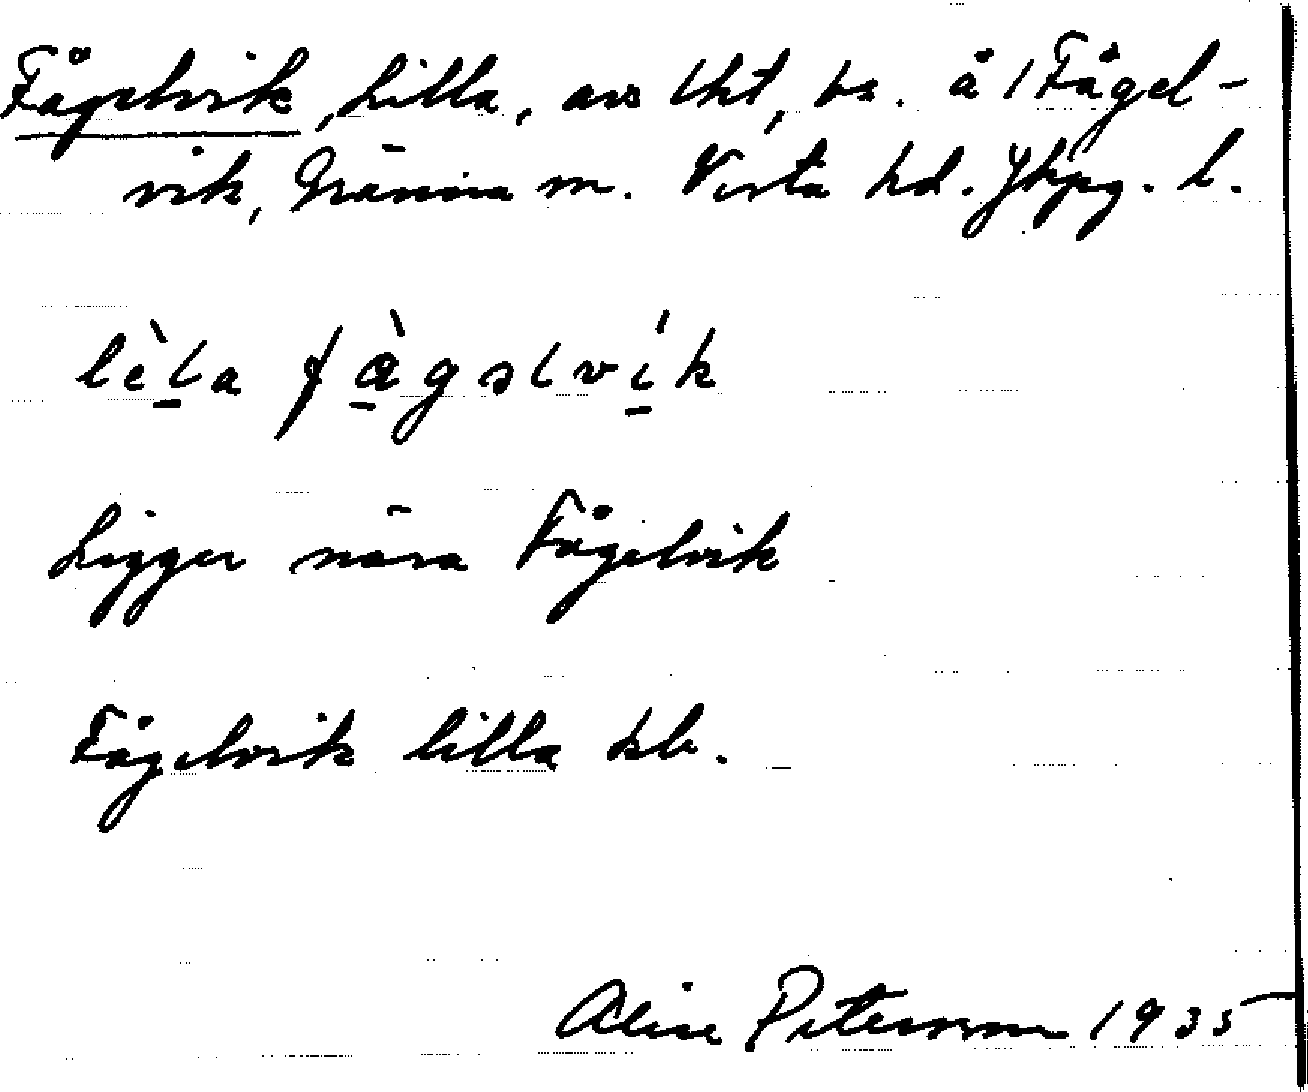 Fågelvik, Lilla, avs lht, bs. å 1 Fågel-
vik, Gränna sn. Vista hd. Jkpg. l.
lèla fàgəlvík
Ligger nära Fågelvik
Fågelvik lilla kb.
Alice Petersson 1935